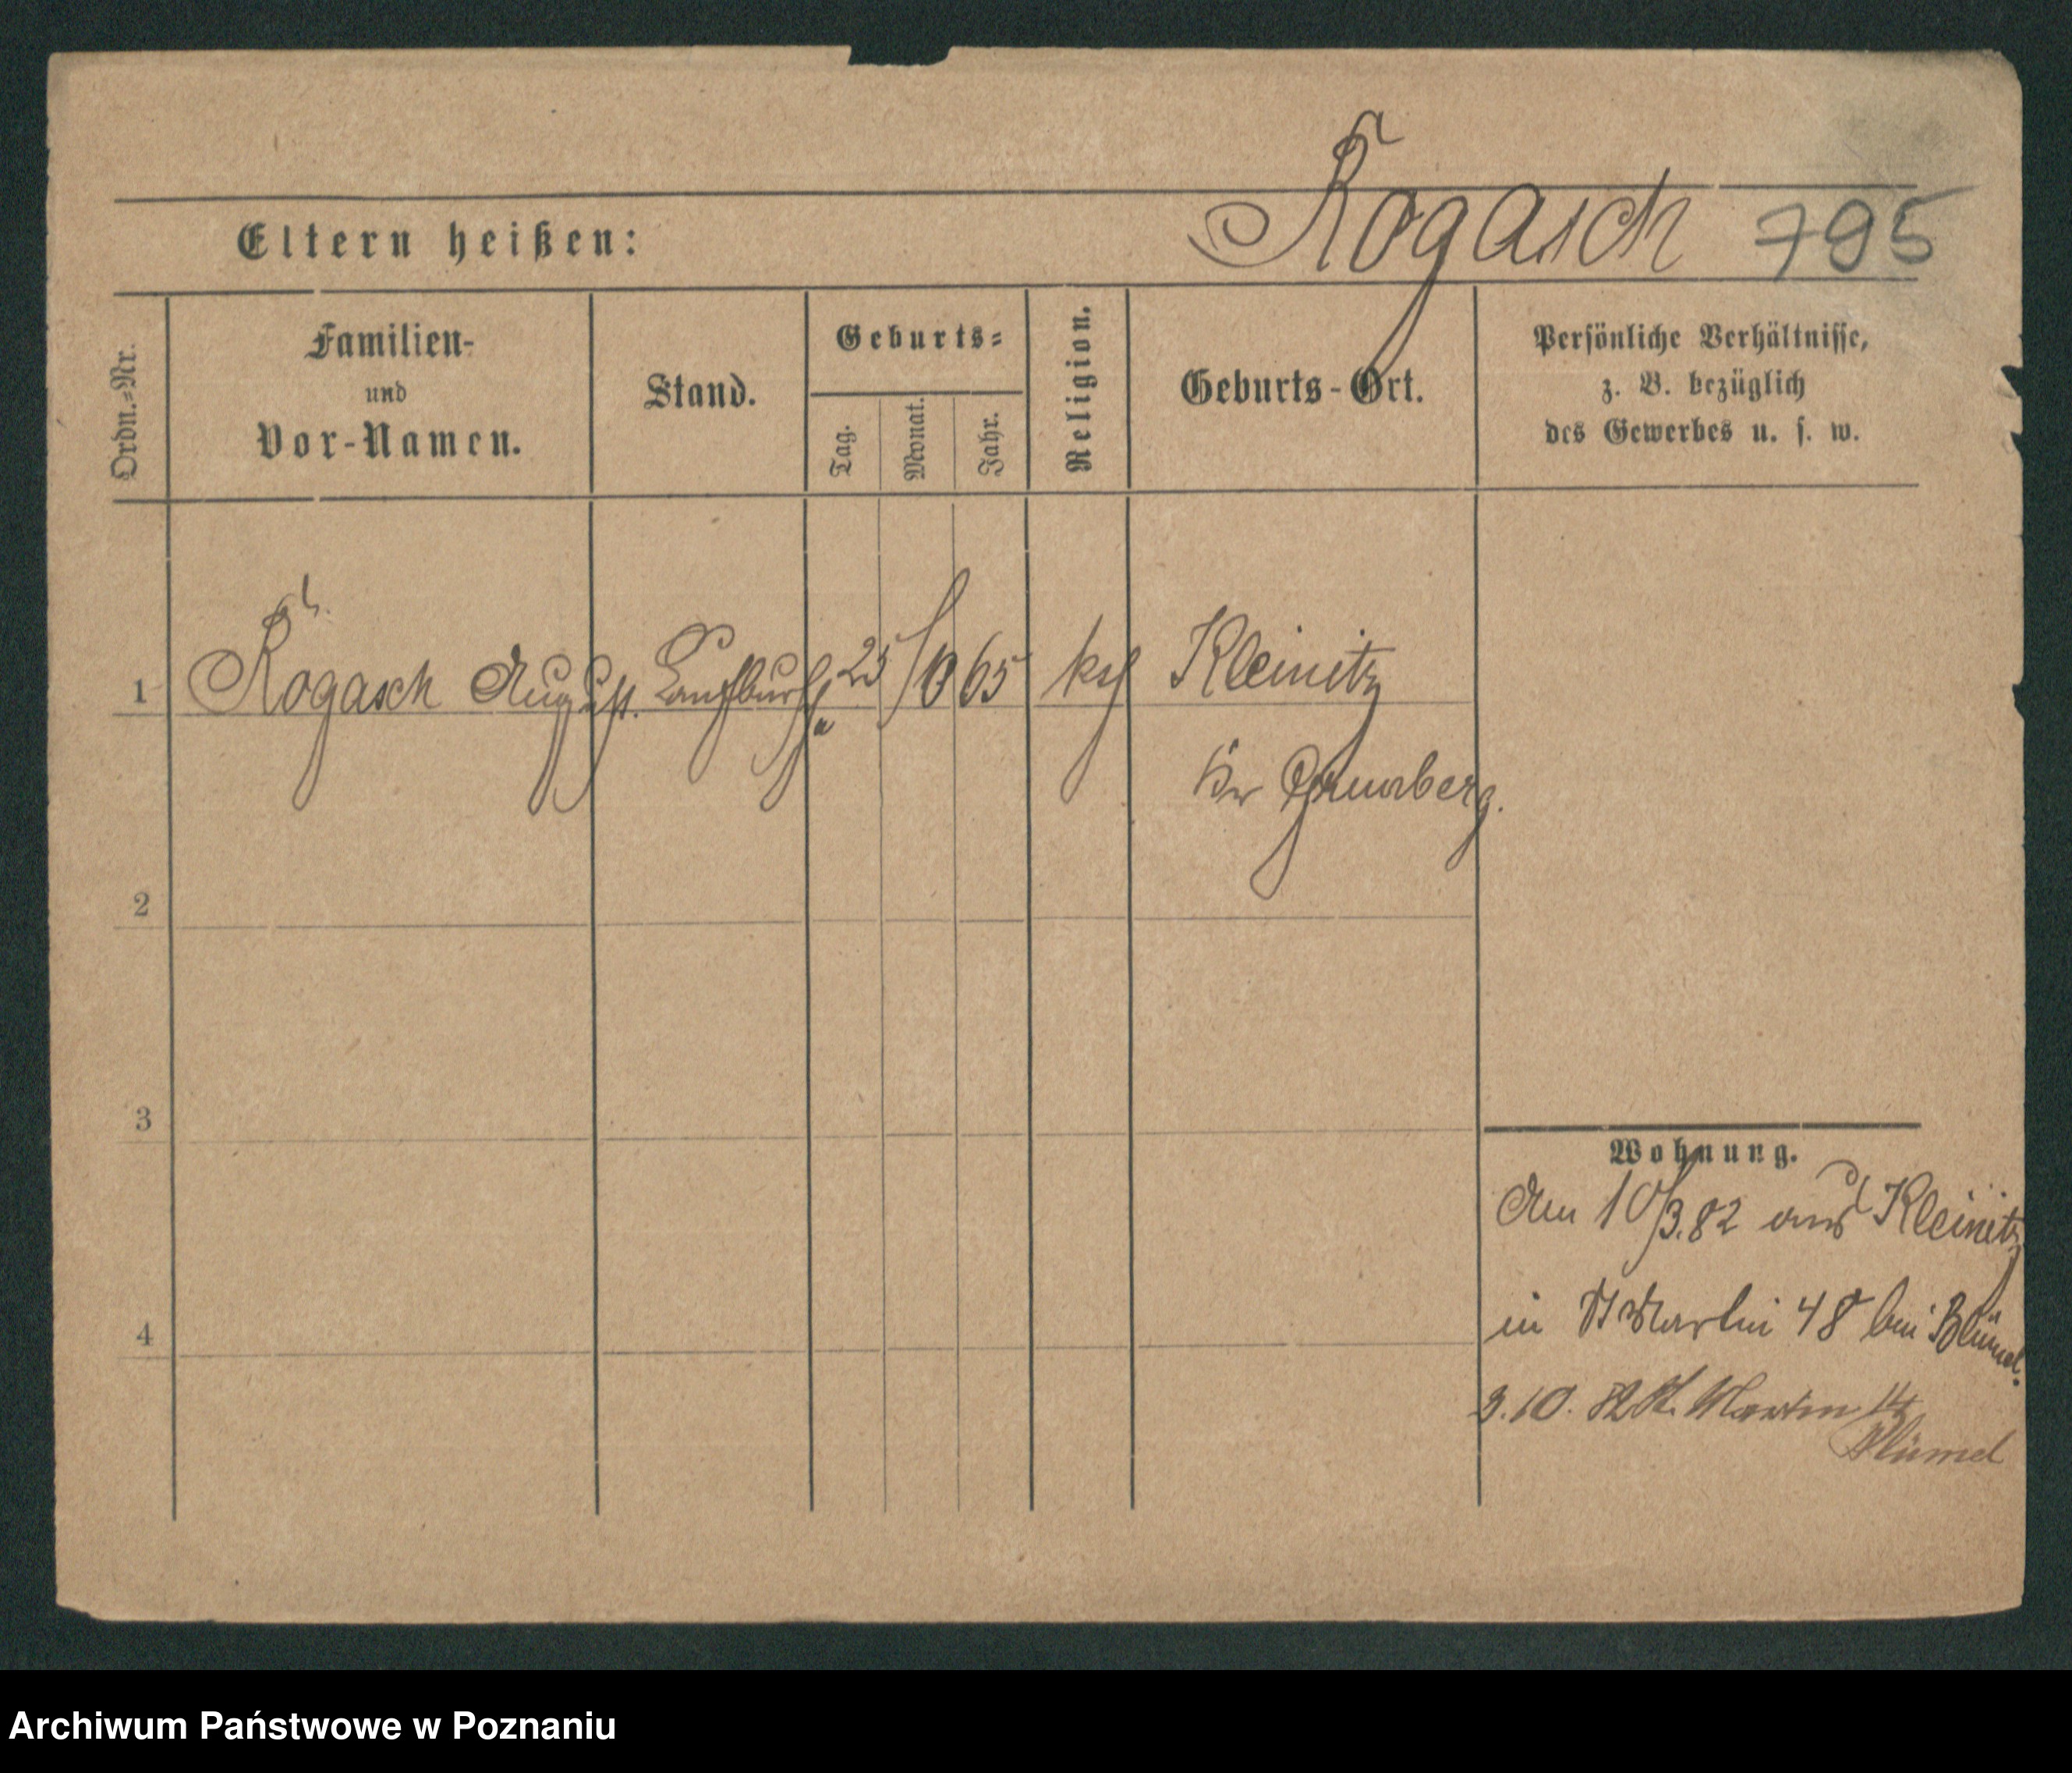 Rogasch 795
Eltern heißen:
Ordn.-Nr.
Familien-
und
Vor-Namen.
Stand.
Geburts-
Tag.
Monat.
Jahr.
Religion.
Geburts-Ort.
Persönliche Verhältnisse,
z. B. bezüglich
des Gewerbes u. s. w.
1 Rogasch August. Laufbursche 25/10 65 Kleinitz
Kr Grünberg.
2
3
4
Wohnung.
Am 10/3.82 aus Kleinitz
in St Martin 48 bei Blümel.
3.10.82 St. Martin 14
Blümel
Archiwum Państwowe w Poznaniu